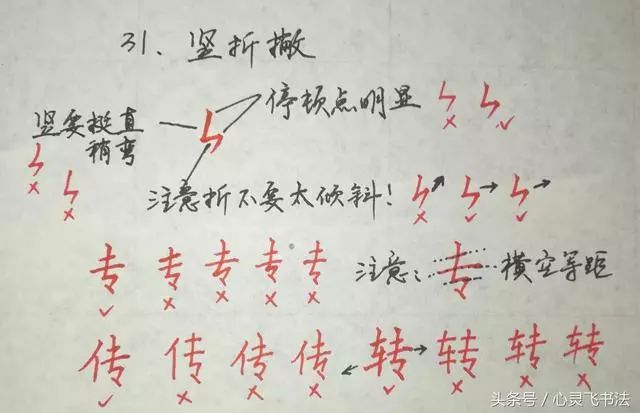 31、竖折撇
停顿点明显
竖要挺直
稍弯
注意折不要太倾斜！
专 专 专 专 专 注意：专 横空等距
传 传 传 传 转 转 转 转
头条号／心灵飞书法